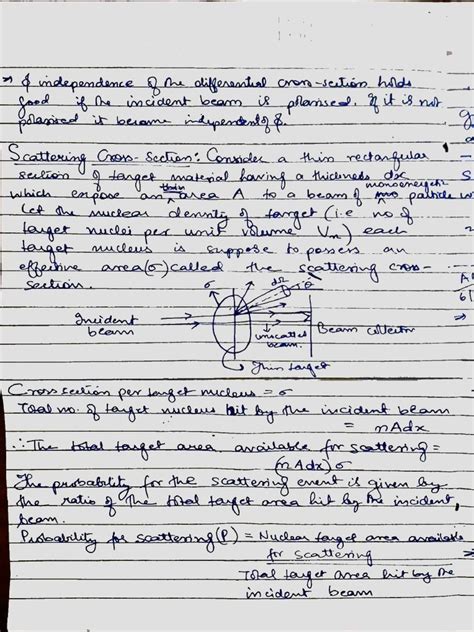 → ϕ independence of the differential cross-section holds
good if the incident beam is polarised. If it is not
polarised it became independent of ϕ.
Scattering Cross-section: Consider a thin rectangular
section of target material having a thickness dx
which expose an thin area A to a beam of monoenergetic particle
Let the nuclear density of target (i.e no of
target nuclei per unit volume Vm) each
target nucleus is suppose to possess an
effective area (σ) called the scattering cross-
section.
σ dΩ θ
Incident
beam
unscatted
beam.
Beam collector
Thin target
Cross section per target nucleus = σ
Total no. of target nucleus hit by the incident beam
= nAdx
∴ The total target area available for scattering =
(nAdx) σ
The probability for the scattering event is given by
the ratio of the total target area hit by the incident
beam.
Probability for scattering (P) = Nuclear target area available
for scattering
Total target area hit by the
incident beam